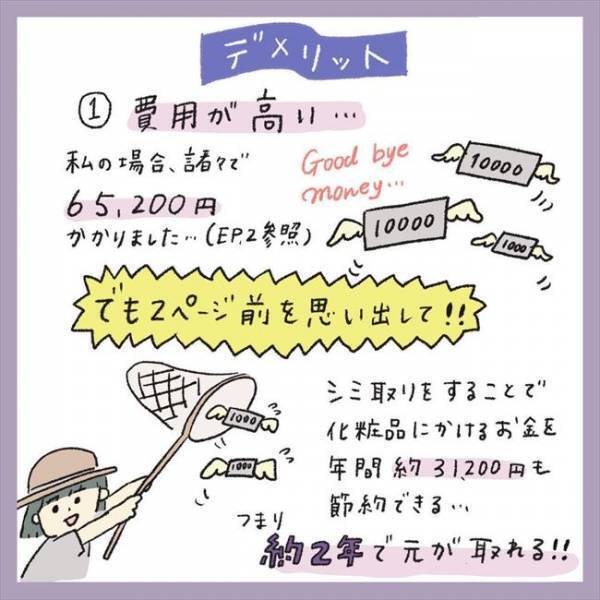 デメリット
① 費用が高い…
私の場合、諸々で
65,200円
かかりました…(EP.2参照)
Good bye
money…
10000
10000
1000
でも2ページ前を思い出して!!
1000
1000
シミ取りをすることで
化粧品にかけるお金を
年間約31,200円も
節約できる…
つまり
約2年で元が取れる!!